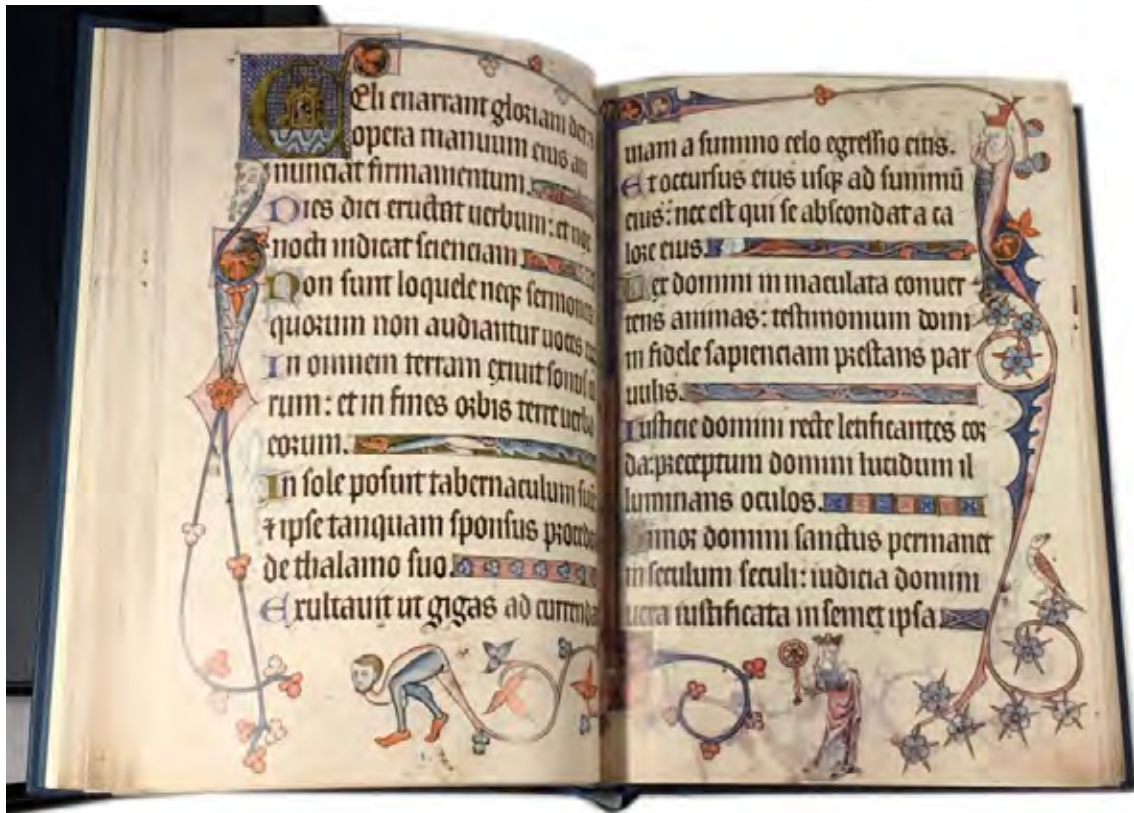 Celi enarrant gloriam dei
opera manuum eius an
nunciat firmamentum.
Dies diei eructat uerbum: et
nocti indicat scienciam
Non sunt loquele neqꝫ sermones
quorum non audiantur uoces
In omnem terram exiuit sonus
rum: et in fines orbis terre uerba
eorum.
In sole posuit tabernaculum suū
⁊ ipse tanquam sponsus
de thalamo suo.
Exultauit ut gigas ad
uiam a summo celo egressio eius.
Et occursus eius usqꝫ ad summū
eius: nec est qui se abscondat a ca
lore eius.
Lex domini inmaculata conuer
tens animas: testimonium domi
ni fidele sapienciam prestans par
uulis.
Iusticie domini recte letificantes cor
da: preceptum domini lucidum il
luminans oculos.
Timor domini sanctus permanet
in seculum seculi: iudicia domini
uera iustificata in semet ipsa